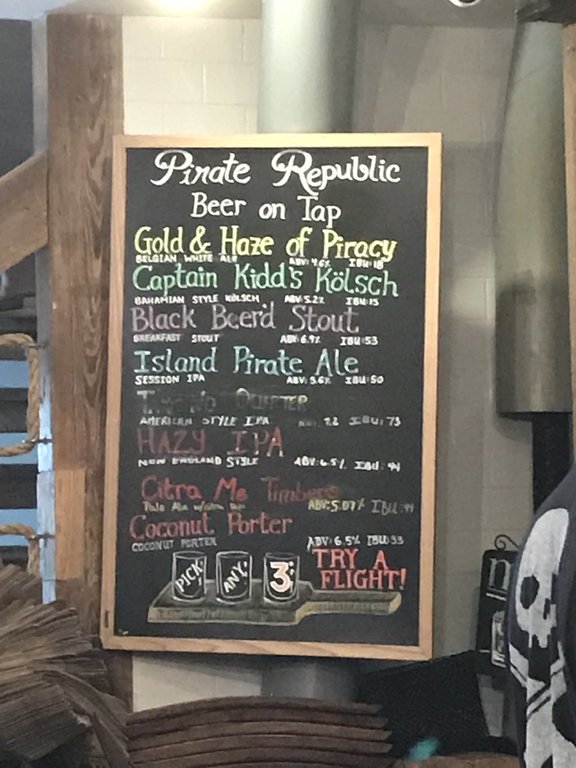 Pirate Republic
Beer on Tap
Gold & Haze of Piracy
BELGIAN WHITE ALE ABV: 4.6% IBU: 18
Captain Kidd's Kölsch
BAHAMIAN STYLE KOLSCH ABV: 5.2% IBU: 15
Black Beer'd Stout
BREAKFAST STOUT ABV: 6.9% IBU: 53
Island Pirate Ale
SESSION IPA ABV: 5.6% IBU: 50
No Quarter
AMERICAN STYLE IPA 7.2 IBU: 73
HAZY IPA
NEW ENGLAND STYLE ABV: 6.5% IBU: 44
Citra Me Timbers
Pale Ale ABV: 5.07% IBU:
Coconut Porter
COCONUT PORTER ABV: 6.5% IBU: 33
PICK ANY 3
TRY A
FLIGHT!